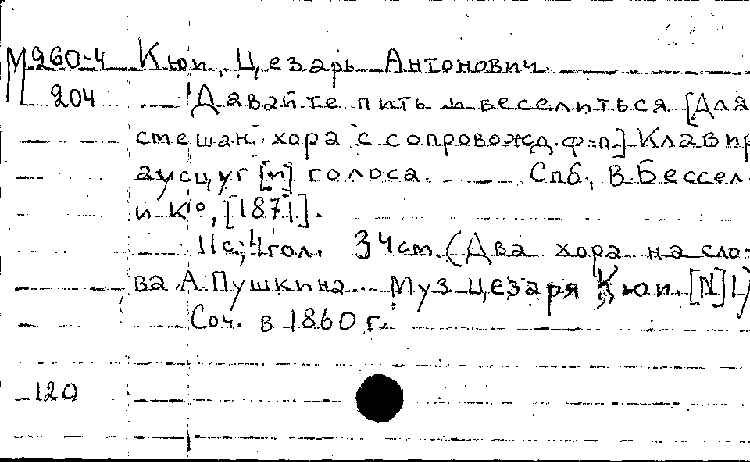 М260-4 Кюи, Цезарь Антонович
204 Давайте пить и веселиться [Для
смешан. хора с сопровожд. ф-п.] Клавир
аусцуг [и] голоса. Спб., В. Бессел
и К°, [1871].
11 с.; 4 гол. 34 см. (Два хора на сло-
ва А. Пушкина... Муз. Цезаря Кюи. [N] 1)
Соч. в 1860 г.
120